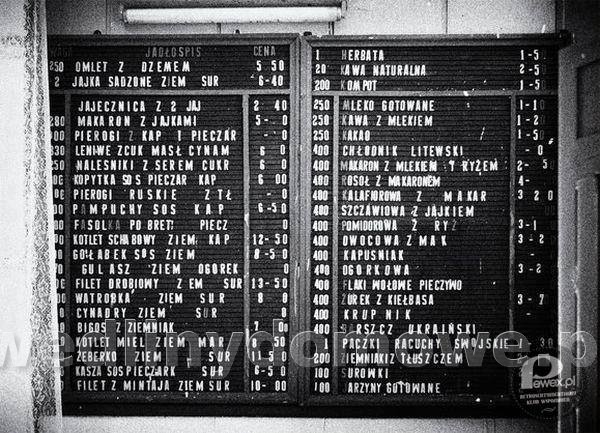 WAGA JADŁOSPIS CENA
250 OMLET Z DŻEMEM 5 50
2 JAJKA SADZONE ZIEM SUR 6-40
JAJECZNICA Z 2 JAJ 2 40
280 MAKARON Z JAJKAMI 5- 0
400 PIEROGI Z KAP I PIECZAR 0
330 LENIWE ZCUK MASŁ CYNAM 6 0
250 NALESNIKI Z SEREM CUKR 6 0
KOPYTKA SOS PIECZAR KAP 6 00
PIEROGI RUSKIE Z TŁ - 0
PAMPUCHY SOS KAP 6-50
FASOLKA PO BRET PIECZ 0
KOTLET SCHABOWY ZIEM KAP 12-50
GOŁĄBEK SOS ZIEM 8-50
GULASZ ZIEM OGOREK 0
FILET DROBIOWY Z EM SUR 13-50
WATROBKA ZIEM SUR 8 8
CYNADRY ZIEM SUR 0
BIGOS Z ZIEMNIAK 7 00
KOTLET MIEL ZIEM MAR 6 50
ŻEBERKO ZIEM SUR 11-50
KASZA SOS PIECZARK SUR 6-50
FILET Z MINTAJA ZIEM SUR 10- 80
1 HERBATA 1-50
20 KAWA NATURALNA 2-50
200 KOMPOT 1-50
250 MLEKO GOTOWANE 1-10
250 KAWA Z MLEKIEM 1-20
250 KAKAO 1-50
400 CHŁODNIK LITEWSKI - 0
400 MAKARON Z MLEKIEM I RYŻEM 2- 50
400 ROSOŁ Z MAKARONEM 4-
400 KALAFIOROWA Z MAKAR 3 20
400 SZCZAWIOWA Z JAJKIEM
400 POMIDOROWA Z RYŻ 3-1
400 OWOCOWA Z MAK 3-2
400 KAPUSNIAK -
400 OGORKOWA 3-2
400 FLAKI WOŁOWE PIECZYWO
400 ŻUREK Z KIEŁBASA 3-7
400 KRUPNIK -
BARSZCZ UKRAIŃSKI
1 PĄCZKI RACUCHY SWOJSKIE 30
200 ZIEMNIAKI Z TŁUSZCZEM
100 SUROWKI
100 JARZYNY GOTOWANE
Pewex.pl